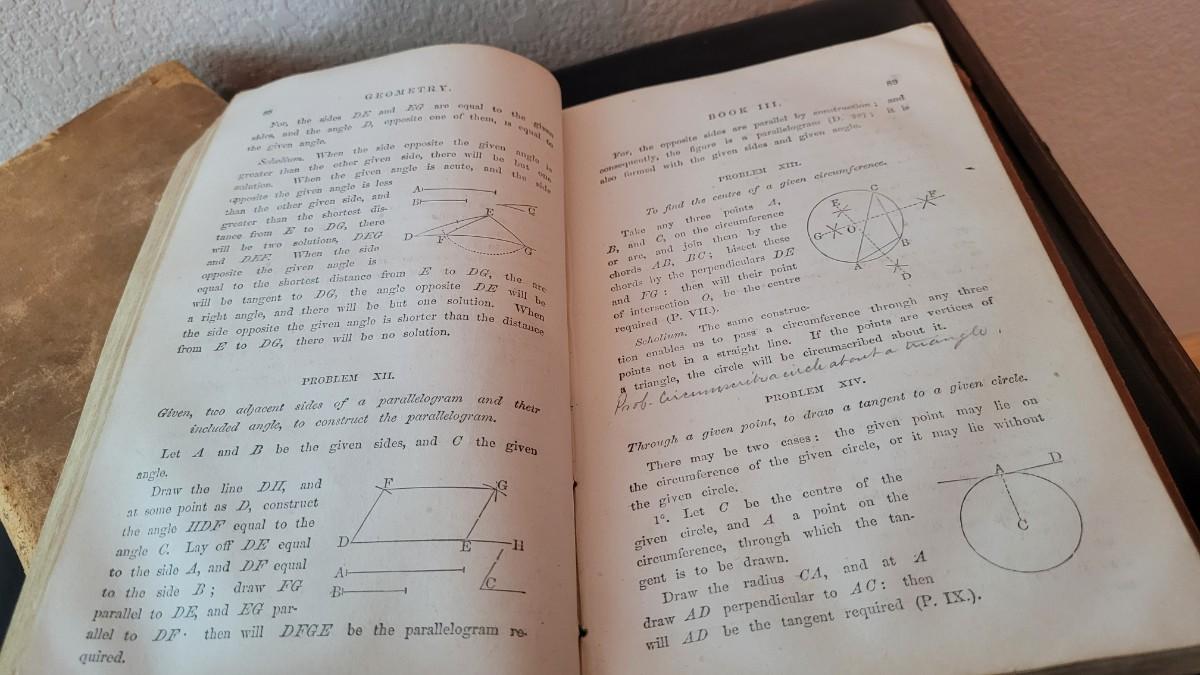 88
GEOMETRY.
For, the sides DE and EG are equal to the given
sides, and the angle D, opposite one of them, is equal to
the given angle.
Scholium. When the side opposite the given angle is
greater than the other given side, there will be but one
solution. When the given angle is acute, and the side
opposite the given angle is less
than the other given side, and
greater than the shortest dis-
tance from E to DG, there
will be two solutions, DEG
and DEF. When the side
opposite the given angle is
equal to the shortest distance from E to DG, the arc
will be tangent to DG, the angle opposite DE will be
a right angle, and there will be but one solution. When
the side opposite the given angle is shorter than the distance
from E to DG, there will be no solution.
A
B
E
C
D
F
G
PROBLEM XII.
Given, two adjacent sides of a parallelogram and their
included angle, to construct the parallelogram.
Let A and B be the given sides, and C the given
angle.
Draw the line DH, and
at some point as D, construct
the angle HDF equal to the
angle C. Lay off DE equal
to the side A, and DF equal
to the side B; draw FG
parallel to DE, and EG par-
allel to DF; then will DFGE be the parallelogram re-
quired.
F
G
D
E
H
A
B
C
BOOK III.
89
For, the opposite sides are parallel by construction; and
consequently, the figure is a parallelogram (D. 29); it is
also formed with the given sides and given angle.
PROBLEM XIII.
To find the centre of a given circumference.
Take any three points A,
B, and C, on the circumference
or arc, and join them by the
chords AB, BC; bisect these
chords by the perpendiculars DE
and FG: then will their point
of intersection O, be the centre
required (P. VII.).
C
E
F
G
O
B
A
D
Scholium. The same construc-
tion enables us to pass a circumference through any three
points not in a straight line. If the points are vertices of
a triangle, the circle will be circumscribed about it.
Prob. Circumscribe a circle about a triangle.
PROBLEM XIV.
Through a given point, to draw a tangent to a given circle.
There may be two cases: the given point may lie on
the circumference of the given circle, or it may lie without
the given circle.
1°. Let C be the centre of the
given circle, and A a point on the
circumference, through which the tan-
gent is to be drawn.
Draw the radius CA, and at A
draw AD perpendicular to AC: then
will AD be the tangent required (P. IX.).
A
D
C